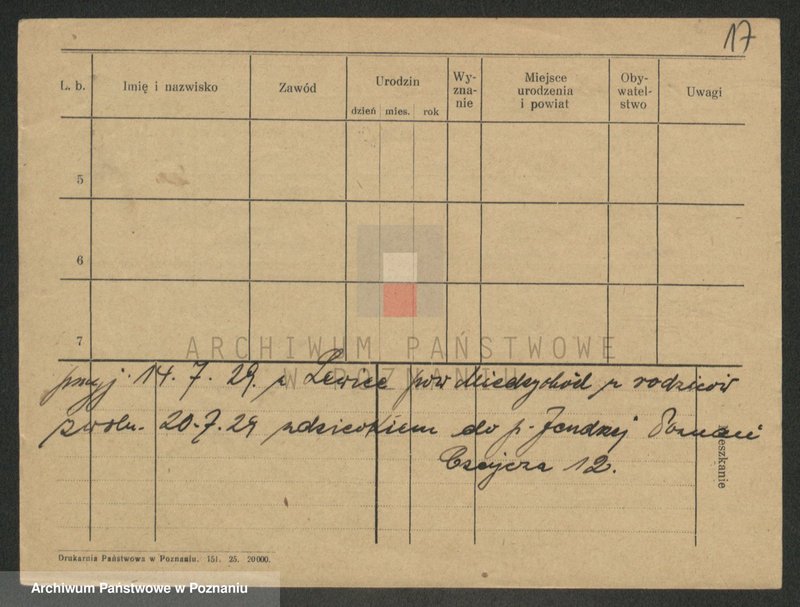 17
L. b. Imię i nazwisko Zawód Urodzin dzień mies. rok Wy-zna-nie Miejsce urodzenia i powiat Oby-watel-stwo Uwagi
5
6
7
ARCHIWUM PAŃSTWOWE
W POZNANIU
przyj. 14. 7. 29. z Lewice pow Międzychód z rodziców
zwoln. 20.7.29 z dzieckiem do p. Poznań
12.
Mieszkanie
Drukarnia Państwowa w Poznaniu. 151. 25. 20000.
Archiwum Państwowe w Poznaniu